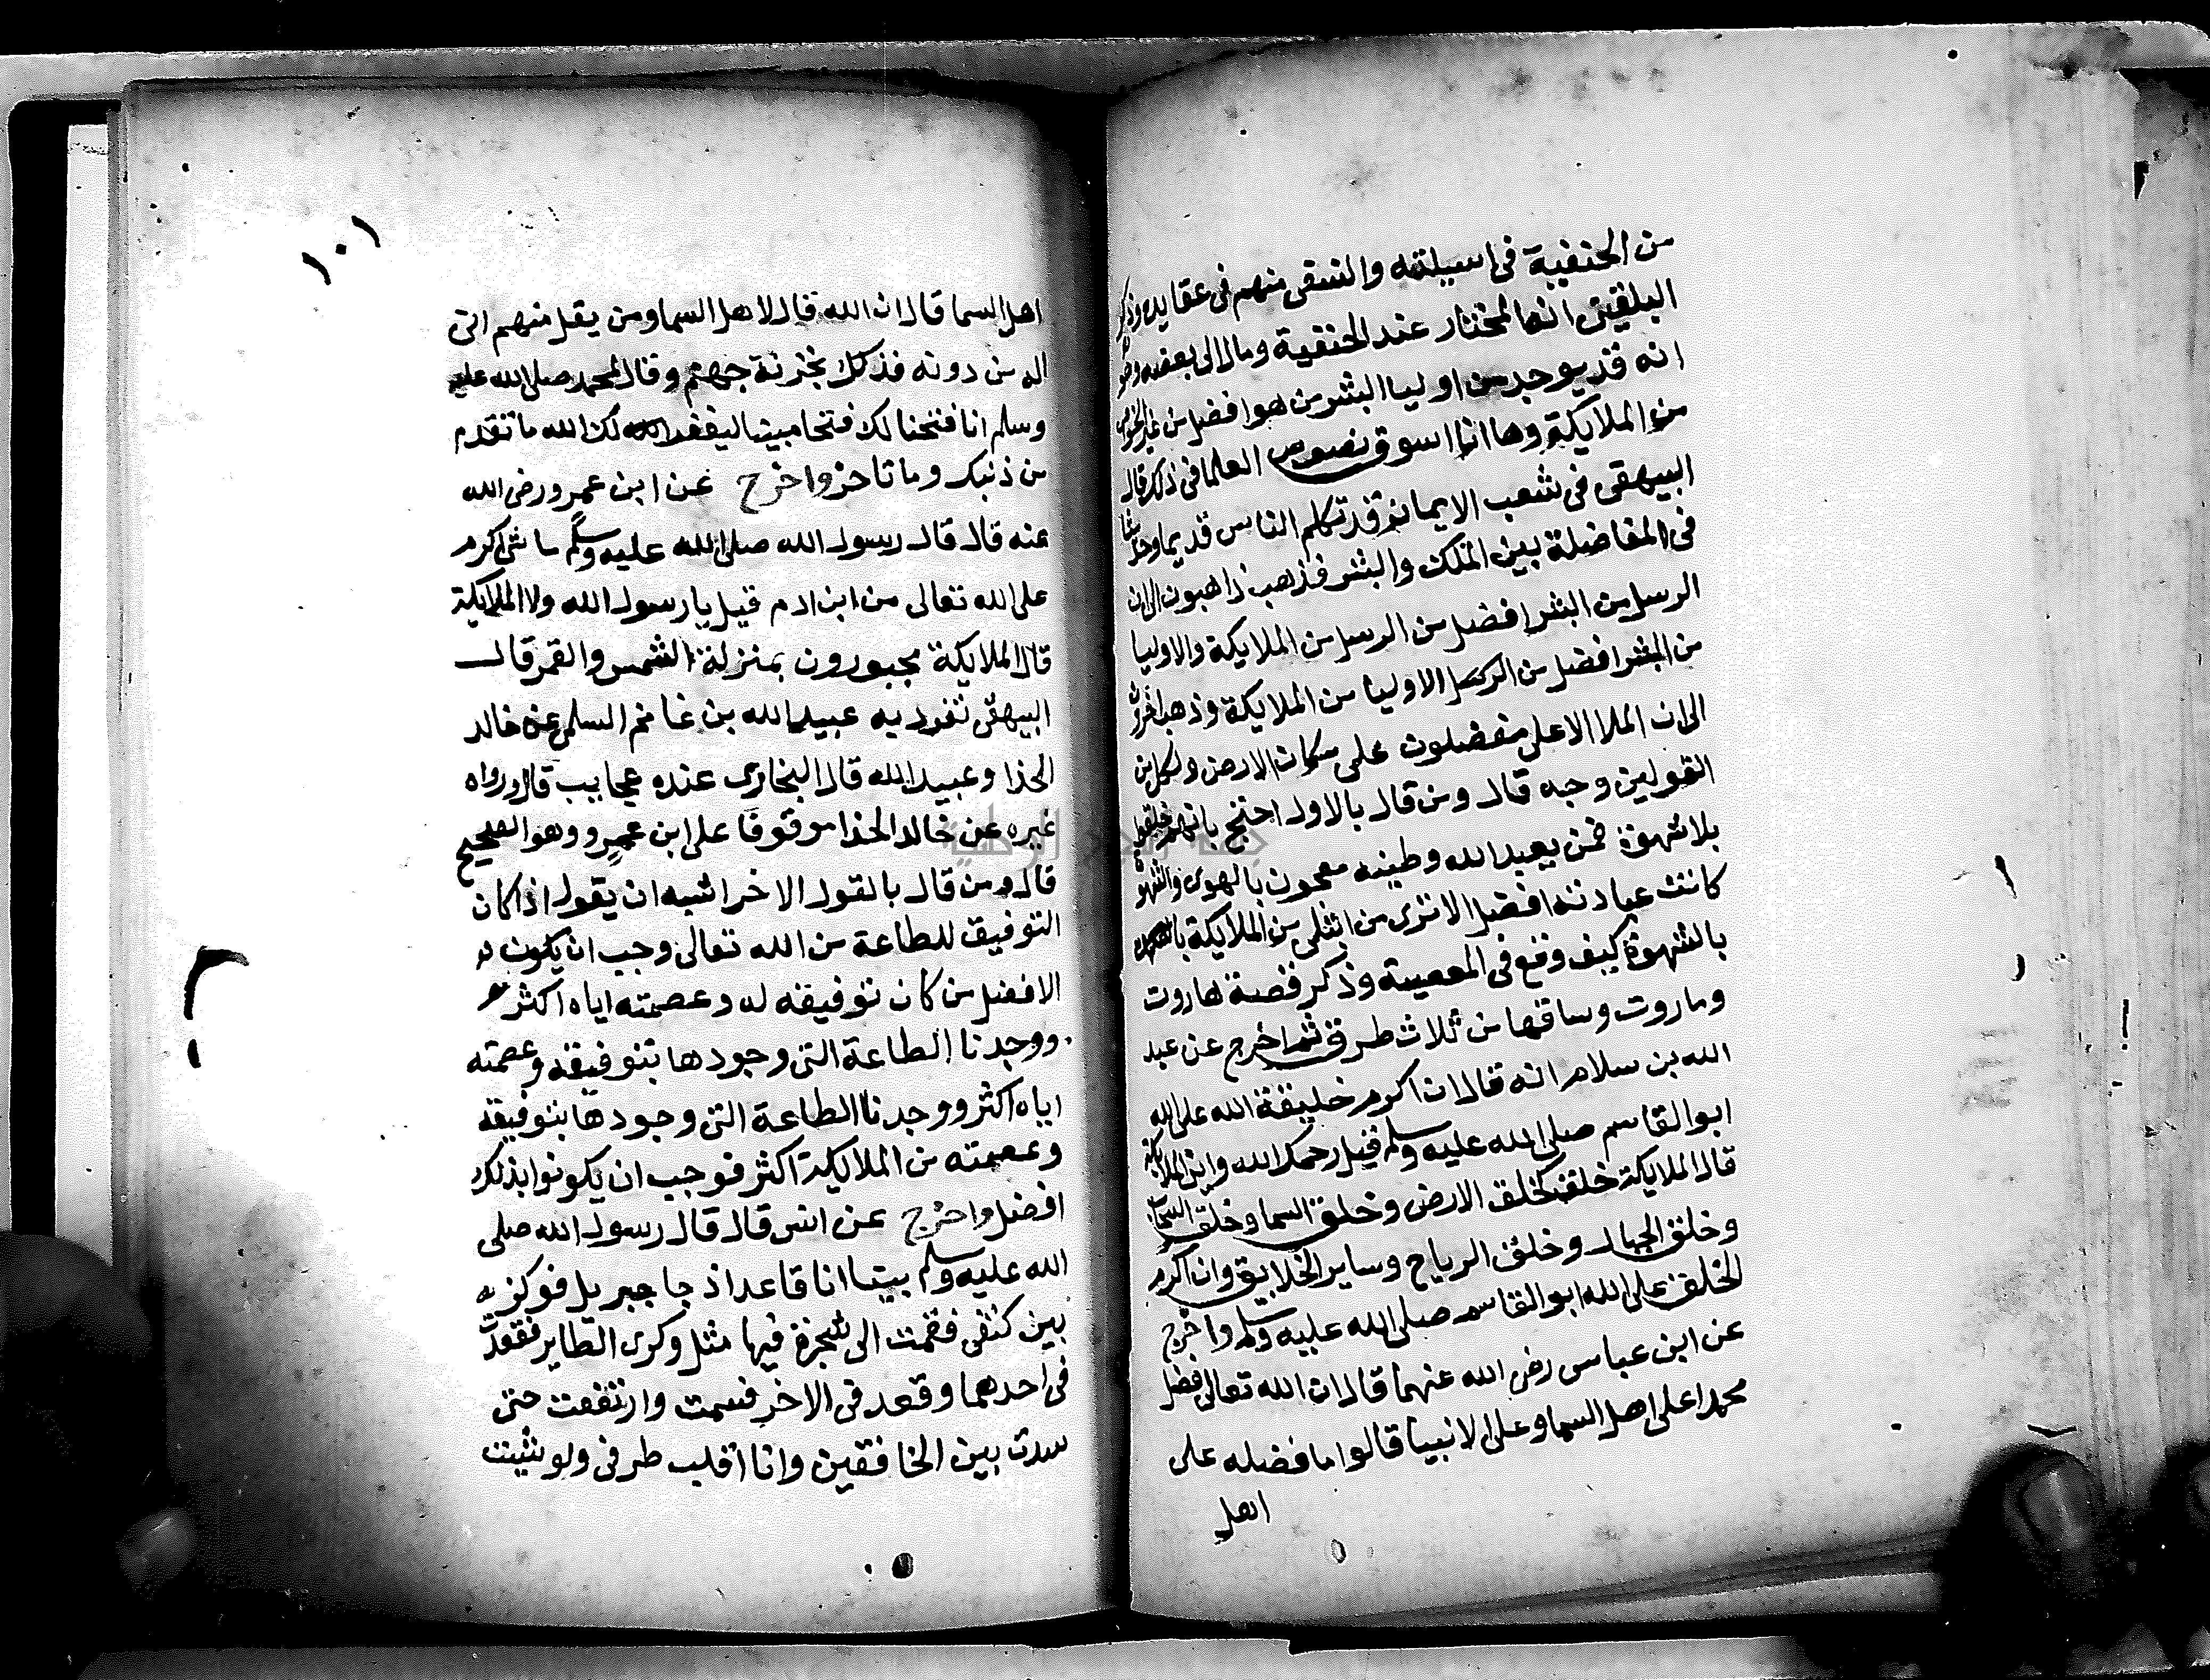 من الحنفية فى اسيلته والنسفى منهم فى عقايده وذكر
البلقينى انها المختار عند الحنفية ومال الى بعضه وهو
انه قد يوجد من اوليا البشر من هوا فضل من غير الخواص
من الملايكة وها انا اسوق نصوص العلما فى ذلك قال
البيهقى فى شعب الايمان قد تكلم الناس قديما وحديثا
فى المفاضلة بين الملك والبشر فذهب ذاهبون الى ان
الرسل من البشر افضل من الرسل من الملايكة والاوليا
من البشر افضل من الاوليا من الملايكة وذهب اخرون
الى ان الملا الاعلى مفضلون على سكان الارض ولكل من
القولين وجه قال ومن قال بالاول احتج بانهم خلقوا
بلا شهوة فمن يعبد الله وطينه معجون بالهوى والشهوة
كانت عبادته افضل الا ترى من ابتلى من الملايكة
بالشهوة كيف وقع فى المعصية وذكر قصة هاروت
وماروت وساقها من ثلاث طرق ثم اخرج عن عبد
الله بن سلام انه قال ان اكرم خليقة الله على الله
ابو القاسم صلى الله عليه وسلم فقيل رحمك الله واين الملايكة
قال الملايكة خلق كخلق الارض وخلق السما وخلق السحاب
وخلق الجبال وخلق الرياح وساير الخلايق وان اكرم
الخلق على الله ابو القاسم صلى الله عليه وسلم واخرج
عن ابن عباس رضى الله عنهما قال ان الله تعالى فضل
محمدا على اهل السما وعلى الانبيا قالوا ما فضله على
اهل
١٠١
اهل السما قال ان الله قال لاهل السما ومن يقل منهم انى
اله من دونه فذلك نجزيه جهنم وقال لمحمد صلى الله عليه
وسلم انا فتحنا لك فتحا مبينا ليغفر لك الله ما تقدم
من ذنبك وما تاخر واخرج عن ابن عمرو رضى الله
عنه قال قال رسول الله صلى الله عليه وسلم ما شى اكرم
على الله تعالى من ابن ادم قيل يا رسول الله ولا الملايكة
قال الملايكة مجبورون بمنزلة الشمس والقمر قال
البيهقى تفرد به عبيد الله بن غانم السلمى عن خالد
الحذا وعبيد الله قال البخارى عنده عجايب قال ورواه
غيره عن خالد الحذا موقوفا على ابن عمرو وهو الصحيح
قال ومن قال بالقول الاخر اشبه ان يقول اذا كان
التوفيق للطاعة من الله تعالى وجب ان يكون
الافضل من كان توفيقه له وعصمته اياه اكثر
ووجدنا الطاعة التى وجودها بتوفيقه وعصمته
اياه اكثر ووجدنا الطاعة التى وجودها بتوفيقه
وعصمته من الملايكة اكثر فوجب ان يكونوا بذلك
افضل واخرج عن انس قال قال رسول الله صلى
الله عليه وسلم بينا انا قاعد اذ جا جبريل فوكز
بين كتفى فقمت الى شجرة فيها مثل وكرى الطاير فقعدت
فى احدهما وقعد فى الاخر فسمت وارتفعت حتى
سدت بين الخافقين وانا اقلب طرفى ولو شيت